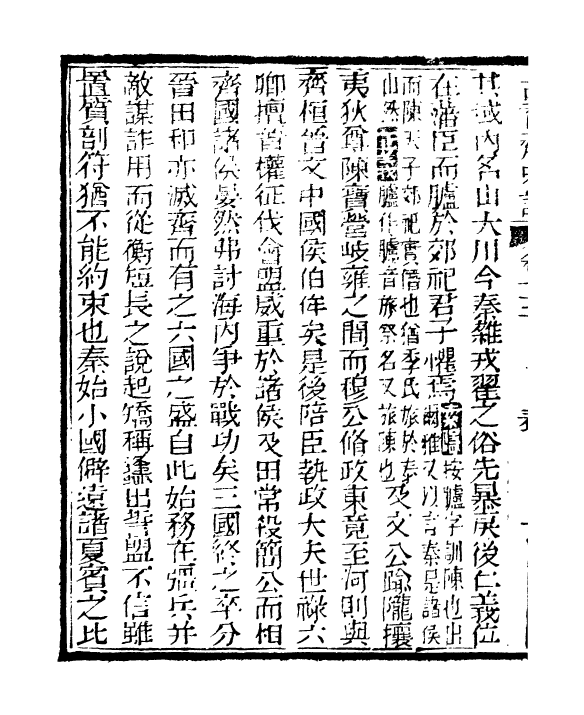 其域內名山大川今秦雜戎翟之俗先暴戾後仁義位
在藩臣而臚於郊祀君子懼焉
索隱按臚字訓陳也出
爾雅文以言秦是諸侯
而陳天子郊祀實僭也猶季氏旅於泰
山然正義臚作臚音旅祭名又旅陳也
及文公踰隴攘
夷狄尊陳寶營岐雍之間而穆公脩政東竟至河則與
齊桓晉文中國侯伯侔矣是後陪臣執政大夫世祿六
卿擅晉權征伐會盟威重於諸侯及田常殺簡公而相
齊國諸侯晏然弗討海內爭於戰功矣三國終之卒分
晉田和亦滅齊而有之六國之盛自此始務在彊兵并
敵謀詐用而從衡短長之說起矯稱蠭出誓盟不信雖
置質剖符猶不能約束也秦始小國僻遠諸夏賓之比